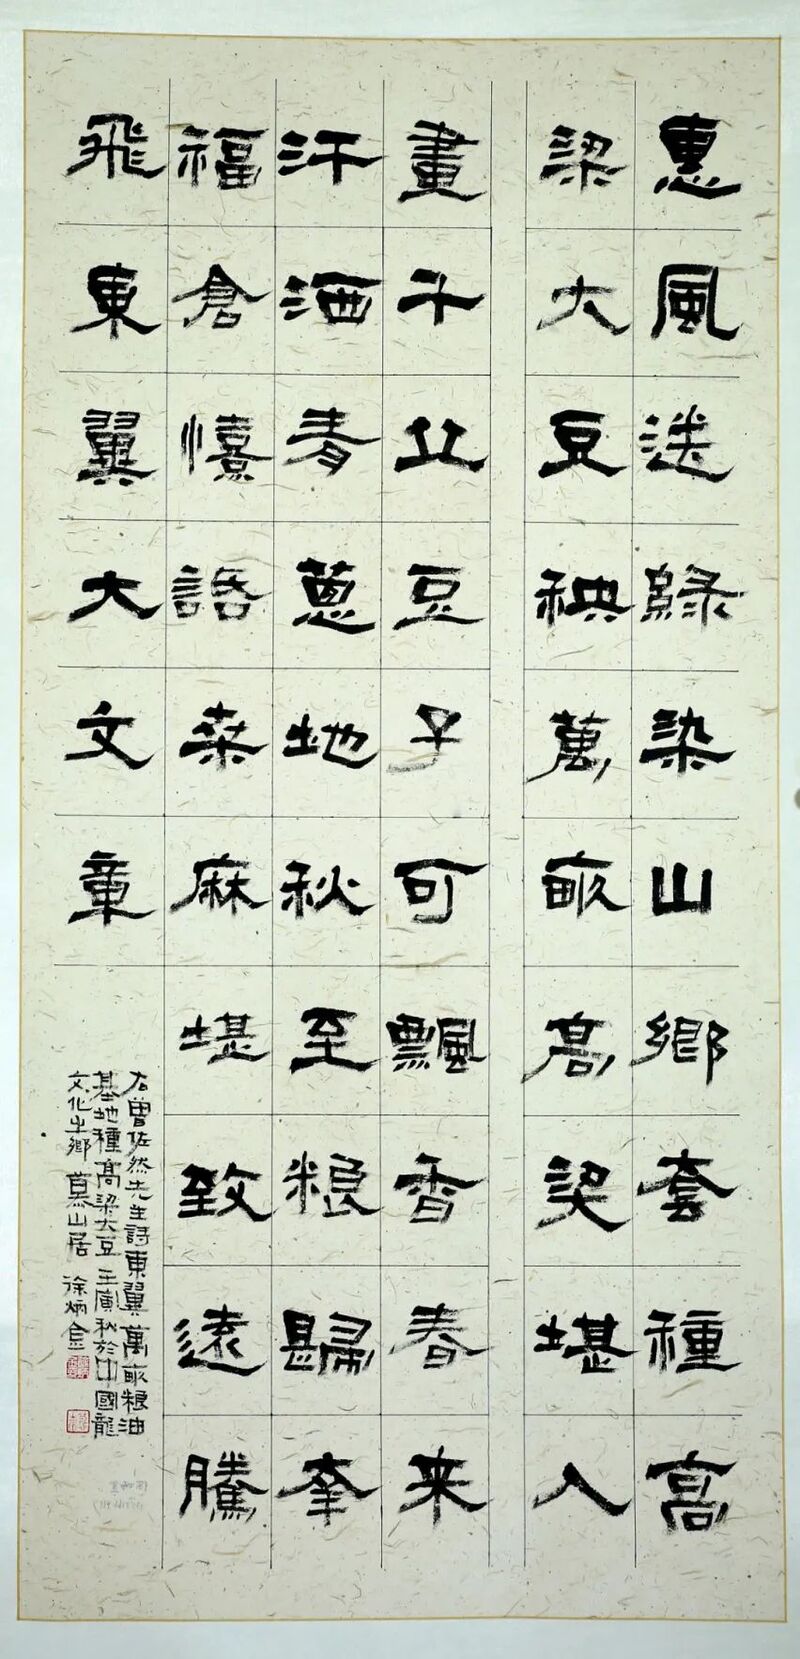 惠風送綠染山鄉套種高
梁大豆秧萬畝高梁堪入
畫千丘豆子可飄香春来
汗洒青蔥地秋至粮歸幸
福倉憘語桑麻堪致遠騰
飛東翼大文章
右曾佐然先生詩東翼萬畝粮油
基地種高梁大豆 壬寅秋於中國龍
文化之鄉 慕山居 徐炳金